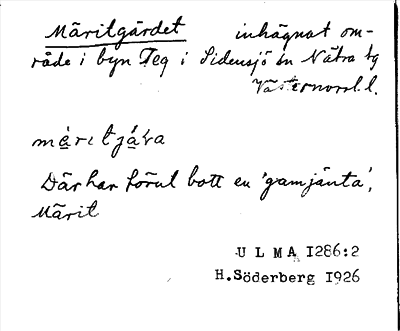 Märitgärdet inhägnat om-
råde i byn Teg i Sidensjö sn Nätra tg
Västernorrl. l.
märitjäɹa
Där har förut bott en 'gamjänta',
Märit
U L M A 1286:2
H.Söderberg 1926